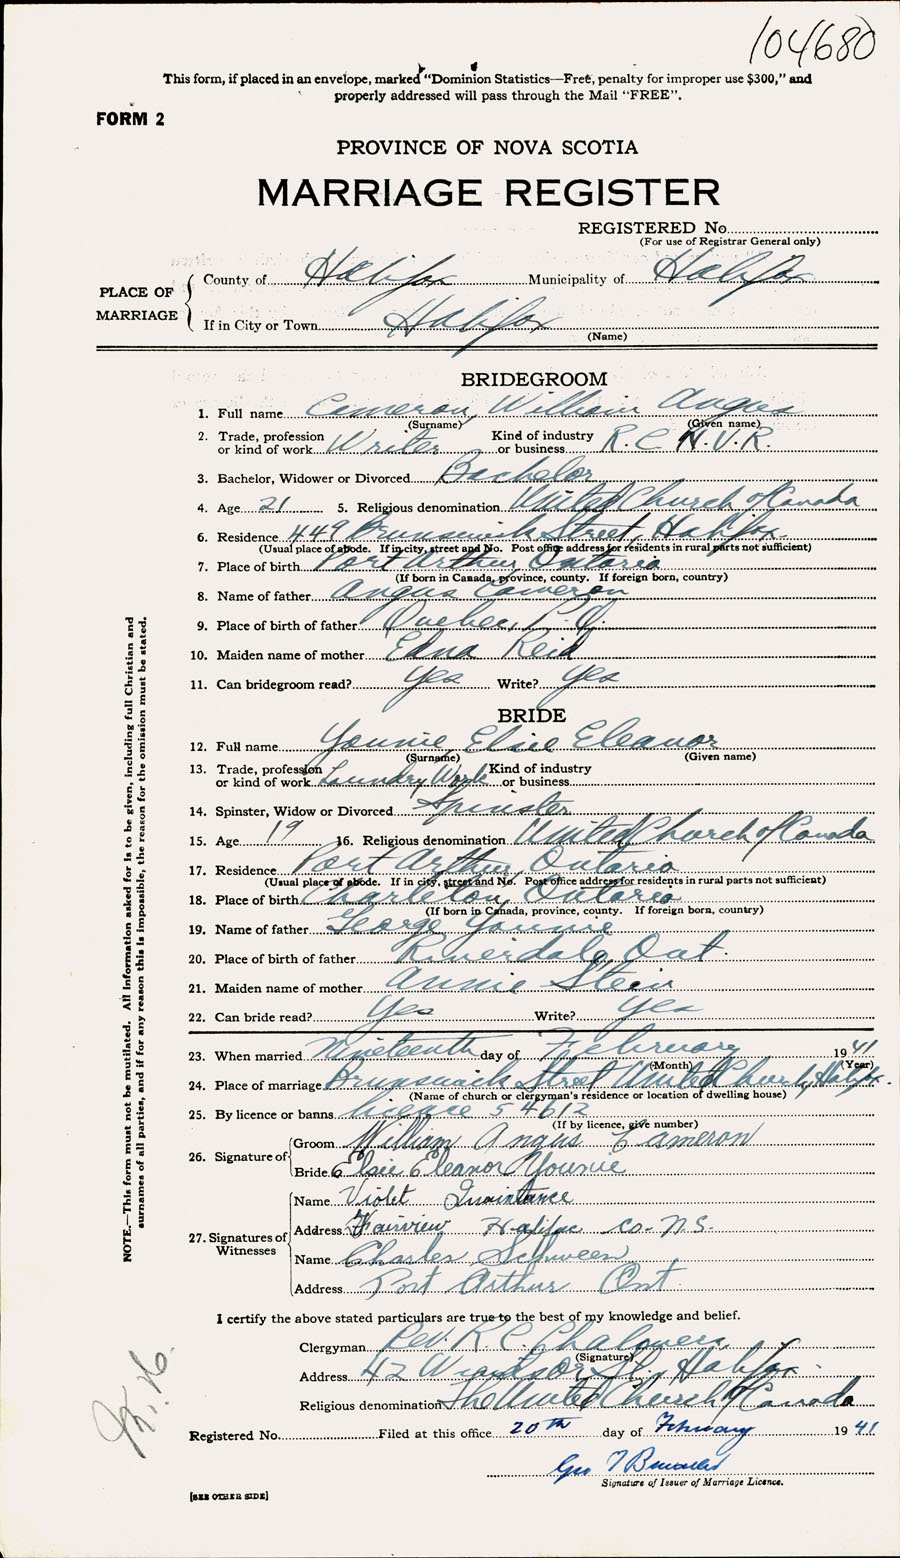 104680
This form, if placed in an envelope, marked "Dominion Statistics—Free, penalty for improper use $300," and
properly addressed will pass through the Mail "FREE".
FORM 2
PROVINCE OF NOVA SCOTIA
MARRIAGE REGISTER
REGISTERED No.
(For use of Registrar General only)
PLACE OF MARRIAGE
County of Halifax Municipality of Halifax
If in City or Town Halifax
(Name)
BRIDEGROOM
1. Full name Cameron, William Angus
(Surname) (Given name)
2. Trade, profession or kind of work Writer Kind of industry or business R.C.N.V.R.
3. Bachelor, Widower or Divorced Bachelor
4. Age 21 5. Religious denomination United Church of Canada
6. Residence 449 Brunswick Street, Halifax.
(Usual place of abode. If in city, street and No. Post office address for residents in rural parts not sufficient)
7. Place of birth Port Arthur, Ontario
(If born in Canada, province, county. If foreign born, country)
8. Name of father Angus Cameron
9. Place of birth of father Quebec, P.Q.
10. Maiden name of mother Edna Reid
11. Can bridegroom read? Yes Write? Yes
BRIDE
12. Full name Younie, Elsie Eleanor
(Surname) (Given name)
13. Trade, profession or kind of work Laundry Work Kind of industry or business
14. Spinster, Widow or Divorced Spinster
15. Age 19 16. Religious denomination United Church of Canada
17. Residence Port Arthur, Ontario
(Usual place of abode. If in city, street and No. Post office address for residents in rural parts not sufficient)
18. Place of birth Charleton, Ontario
(If born in Canada, province, county. If foreign born, country)
19. Name of father George Younie
20. Place of birth of father Riverdale, Ont.
21. Maiden name of mother Annie Stein
22. Can bride read? Yes Write? Yes
23. When married Nineteenth day of February 1941
(Month) (Year)
24. Place of marriage Brunswick Street United Church, Halifax.
(Name of church or clergyman's residence or location of dwelling house)
25. By licence or banns licence 54612
(If by licence, give number)
26. Signature of
Groom William Angus Cameron
Bride Elsie Eleanor Younie
27. Signatures of Witnesses
Name Violet
Address Fairview Halifax Co. N.S.
Name Charles Schween
Address Port Arthur Ont.
I certify the above stated particulars are true to the best of my knowledge and belief.
Clergyman Rev. R.C. Chalmers
(Signature)
Address 42 Windsor St., Halifax.
Religious denomination The United Church of Canada
Registered No. Filed at this office 20th day of February 1941
Geo T
Signature of Issuer of Marriage Licence.
[SEE OTHER SIDE]
NOTE.—This form must not be mutilated. All information asked for is to be given, including full Christian and
surnames of all parties, and if for any reason this is impossible, the reason for the omission must be stated.